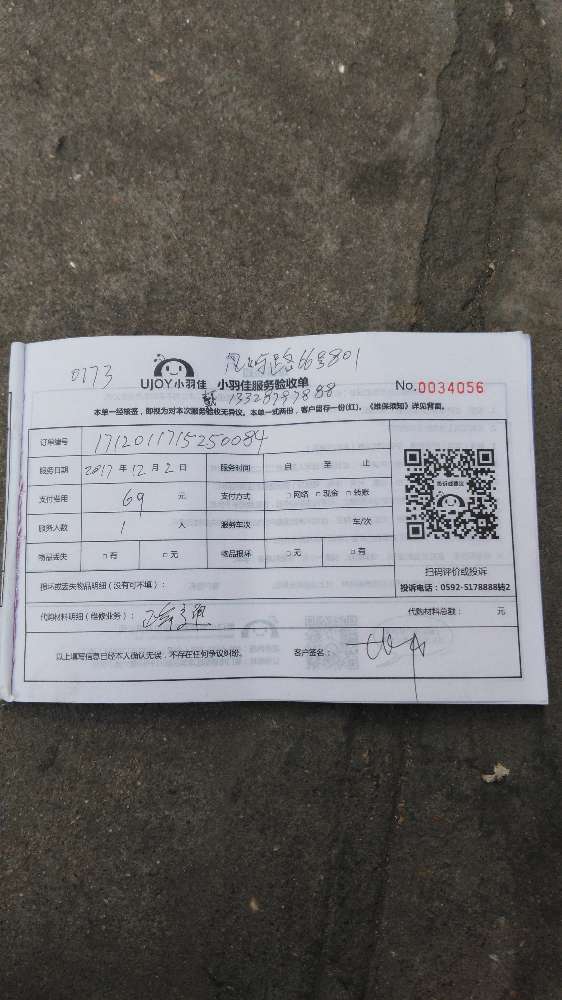 0173 路66号801
UJOY小羽佳 小羽佳服务验收单 No.0034056
13328797888
本单一经核签，即视为对本次服务验收无异议。本单一式两份，客户留存一份(红)。《维保须知》详见背面。
订单编号 1712011715250084
服务日期 2017 年 12 月 2 日 服务时间 自 至 止
支付费用 69 元 支付方式 □网络 □现金 □转账
服务人数 1 人 服务车次 车/次
物品丢失 □有 □无 物品损坏 □无 □有
扫码评价或投诉
投诉电话：0592-5178888转2
损坏或丢失物品明细（没有可不填）：
代购材料明细（维修业务）： 代购材料总额： 元
以上填写信息已经本人确认无误，不存在任何争议纠纷。 客户签名：